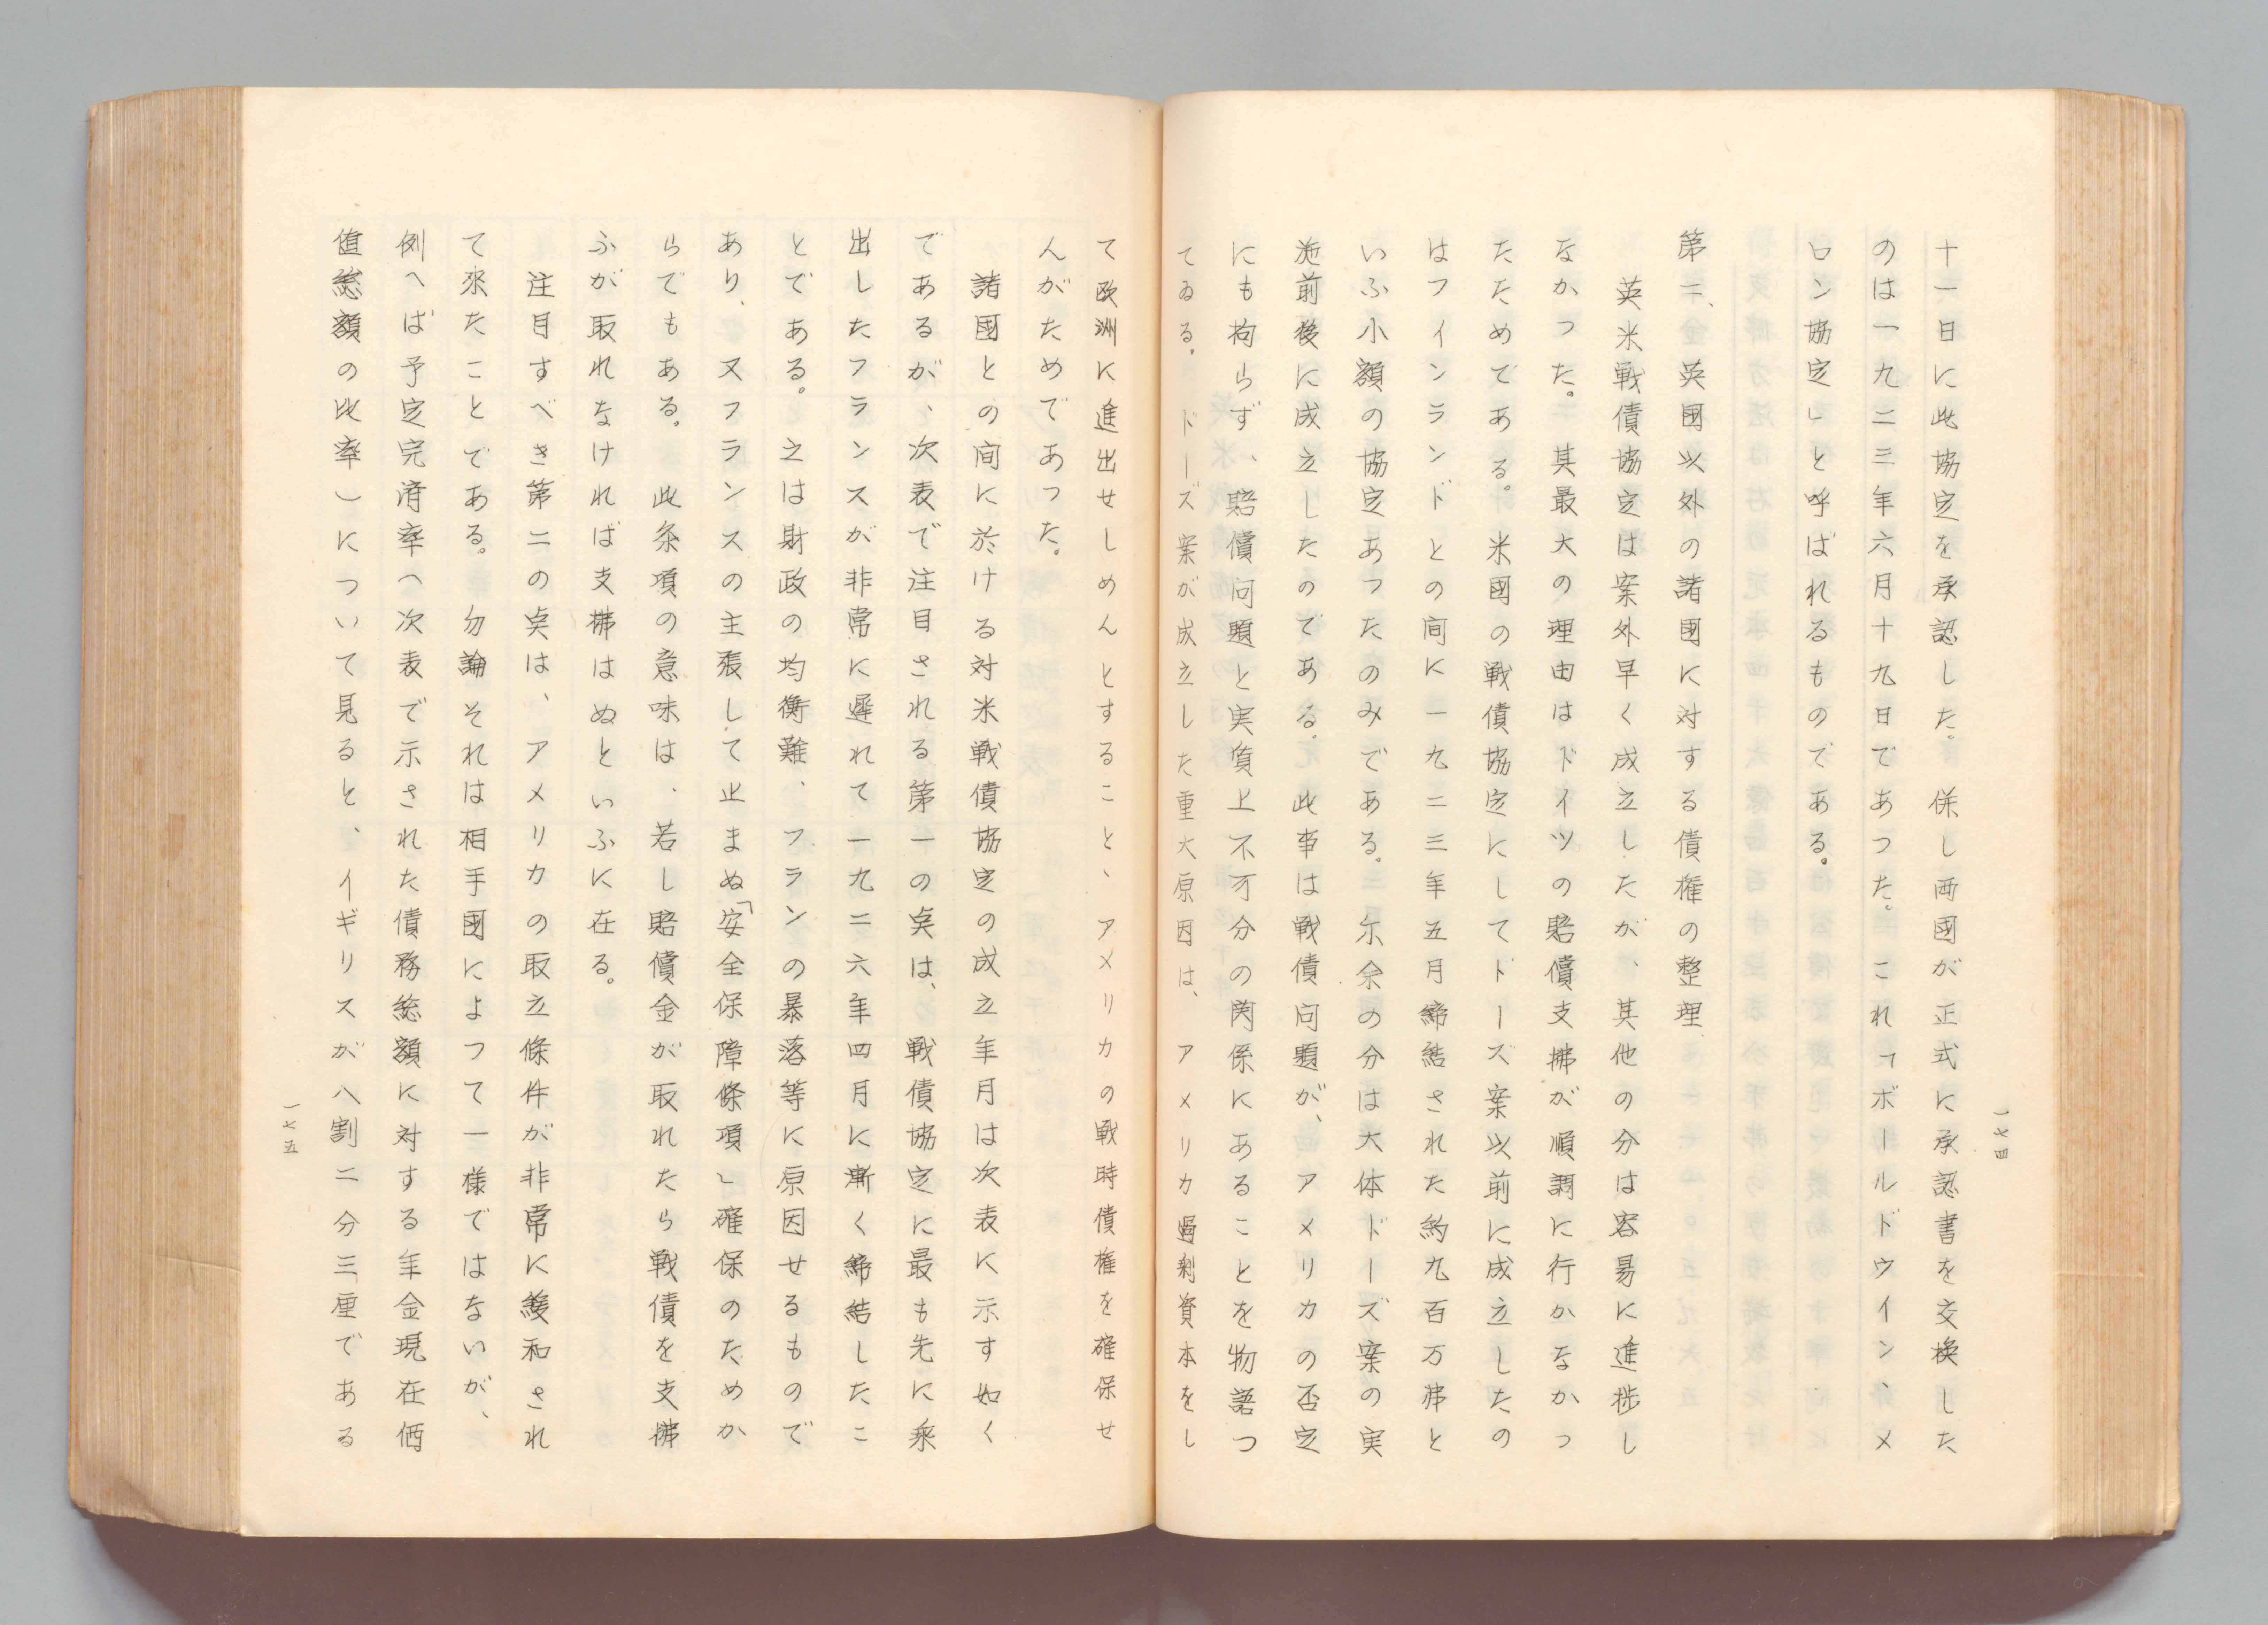 十一日に此協定を承認した。併し両國が正式に承認書を交換した
のは一九二三年六月十九日であつた。これ「ボールドウイン、メ
ロン協定」と呼ばれるものである。
第二、英國以外の諸國に対する債権の整理
英米戦債協定は案外早く成立したが、其他の分は容易に進捗し
なかつた。其最大の理由はドイツの賠償支拂が順調に行かなかつ
たためである。米國の戦債協定にしてドーズ案以前に成立したの
はフインランドとの間に一九二三年五月締結された約九百万弗と
いふ小額の協定あつたのみである。尓余の分は大体ドーズ案の実
施前後に成立したのである。此事は戦債問題が、アメリカの否定
にも拘らず、賠償問題と実質上不可分の関係にあることを物語つ
てゐる。ドーズ案が成立した重大原因は、アメリカ過剰資本をし
一七四
て欧洲に進出せしめんとすること、アメリカの戦時債権を確保せ
んがためであつた。
諸國との間に於ける対米戦債協定の成立年月は次表に示す如く
であるが、次表で注目される第一の奌は、戦債協定に最も先に乗
出したフランスが非常に遅れて一九二六年四月に漸く締結したこ
とである。之は財政の均衡難、フランの暴落等に原因せるもので
あり、又フランスの主張して止まぬ「安全保障條項」確保のためか
らでもある。此条項の意味は、若し賠償金が取れたら戦債を支拂
ふが取れなければ支拂はぬといふに在る。
注目すべき第二の奌は、アメリカの取立條件が非常に緩和され
て來たことである。勿論それは相手國によつて一様ではないが、
例へば予定完済率（次表で示された債務総額に対する年金現在価
値総額の比率）について見ると、イギリスが八割二分三厘である
一七五